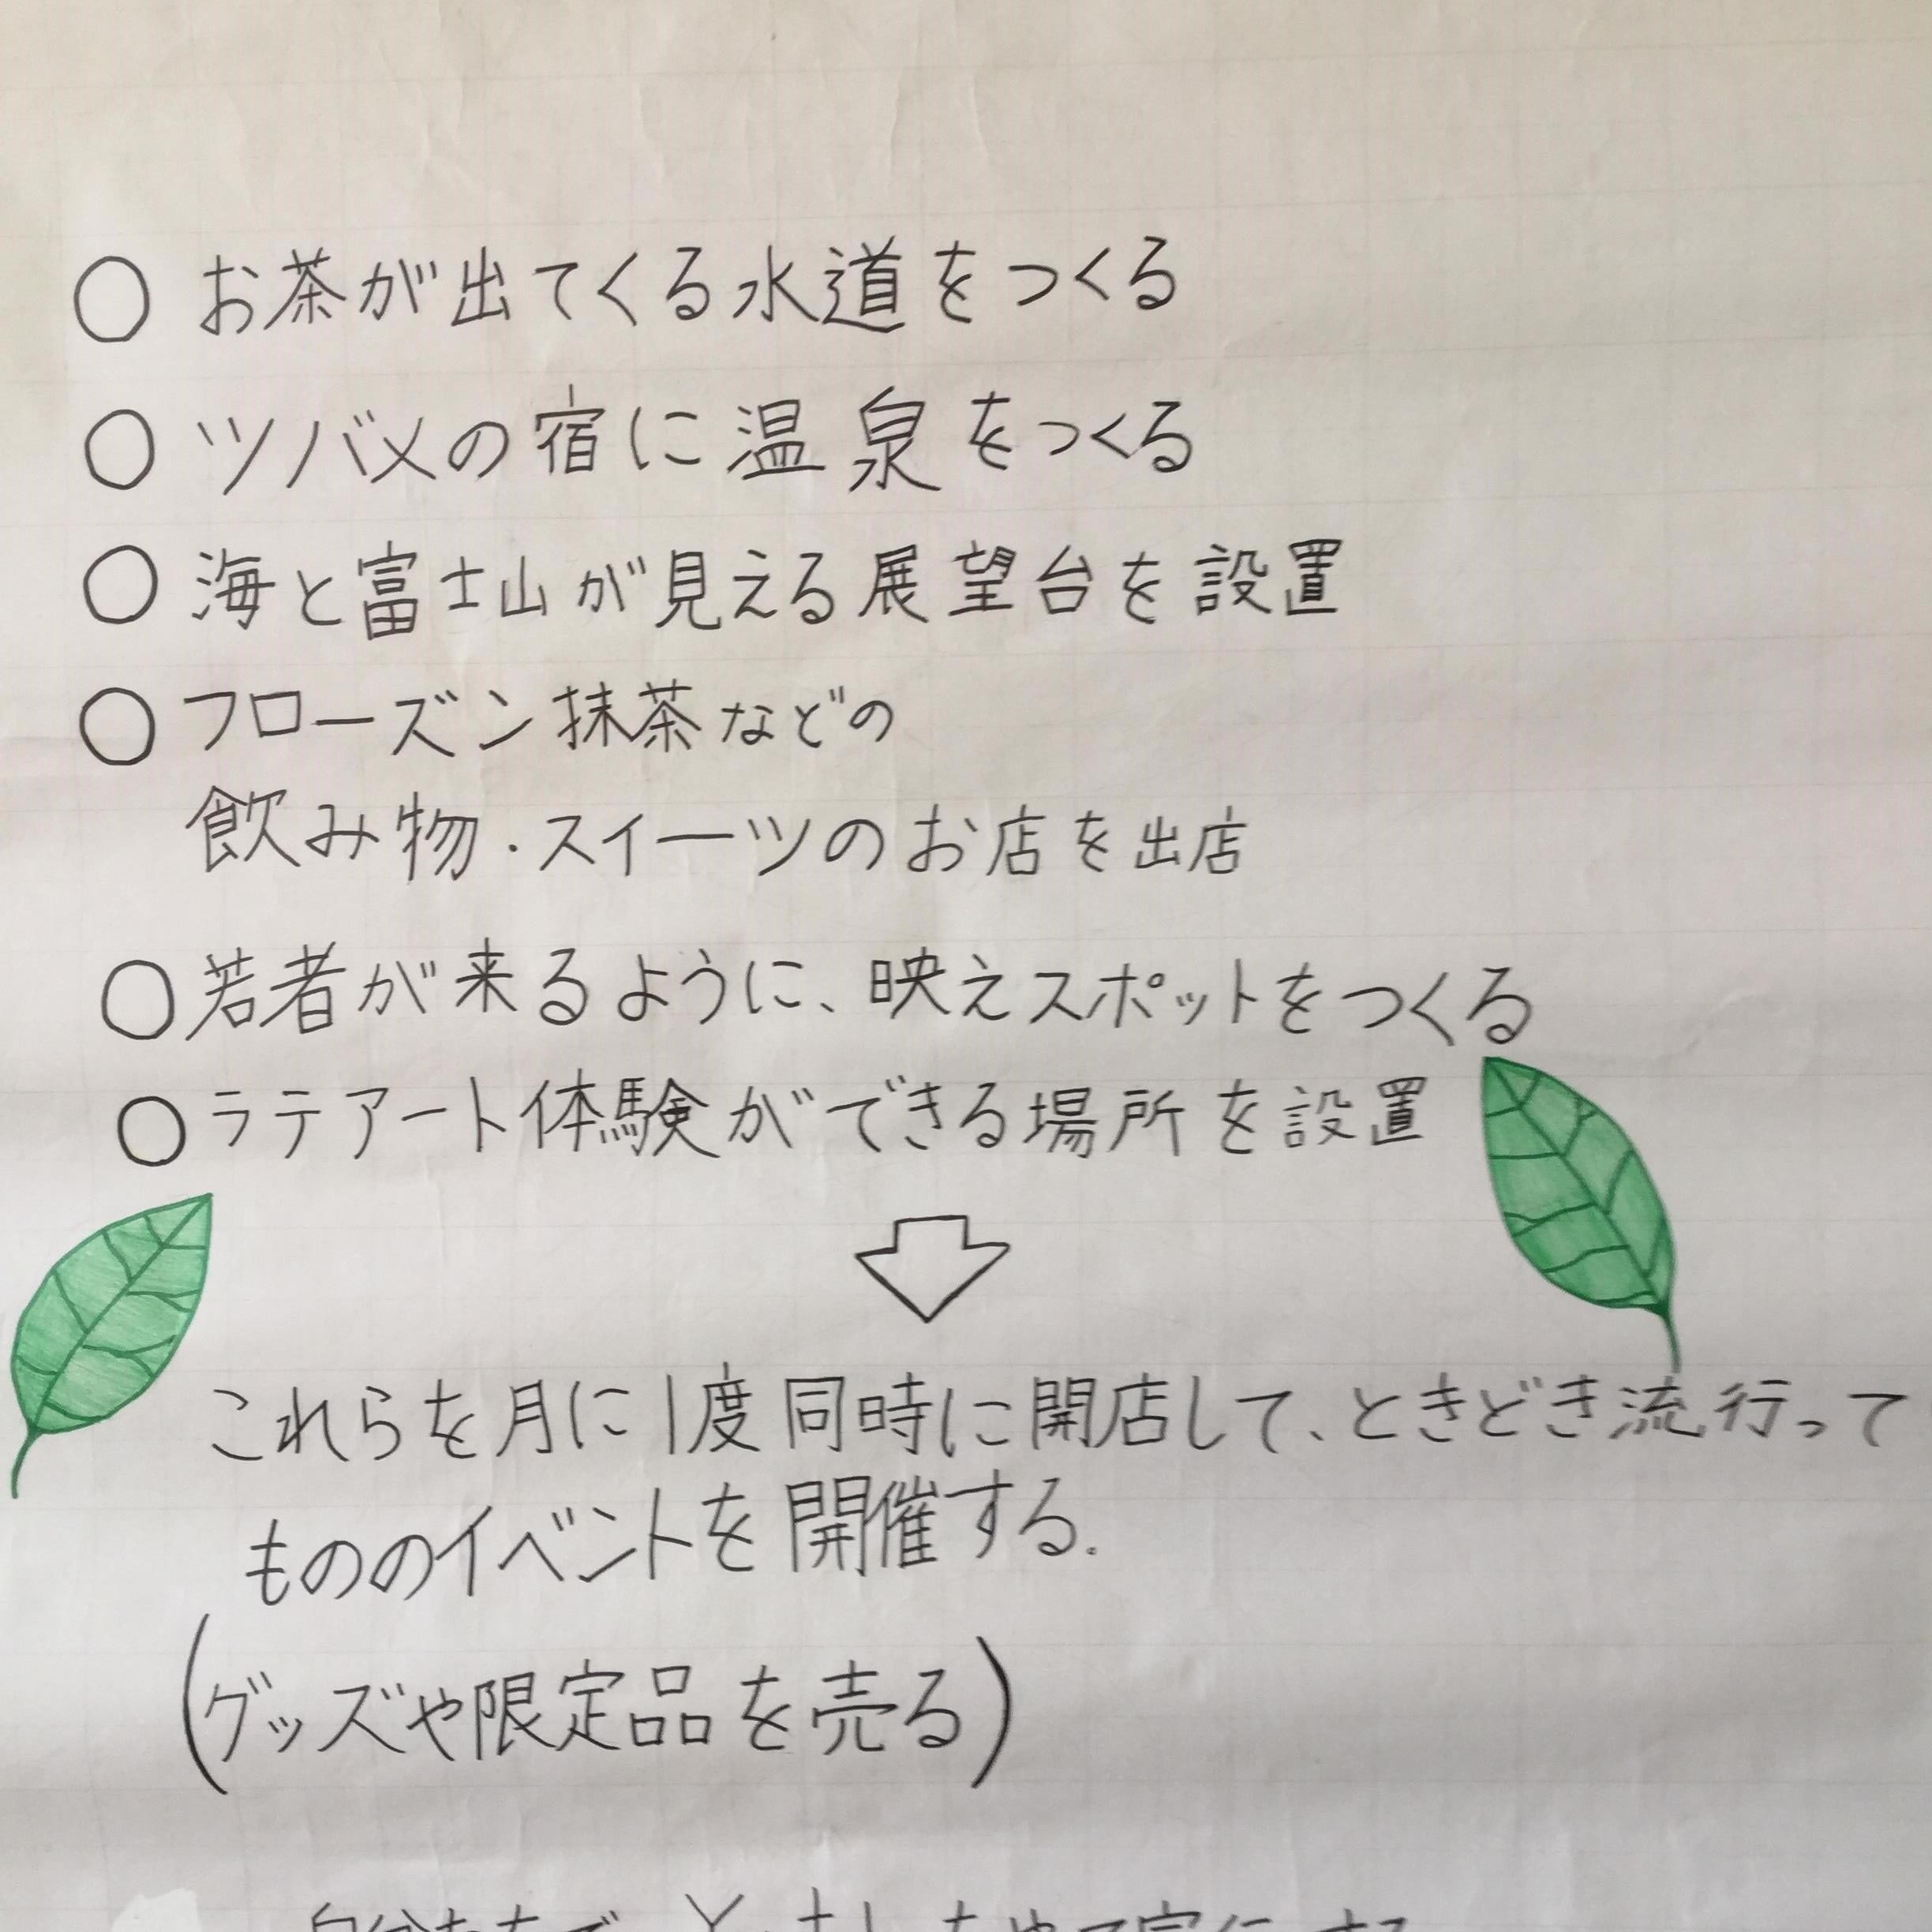 ○ お茶が出てくる水道をつくる
○ ツバメの宿に温泉をつくる
○ 海と富士山が見える展望台を設置
○ フローズン抹茶などの
飲み物・スイーツのお店を出店
○ 若者が来るように、映えスポットをつくる
○ ラテアート体験ができる場所を設置
これらを月に1度同時に開店して、ときどき流行って
もののイベントを開催する.
(グッズや限定品を売る)